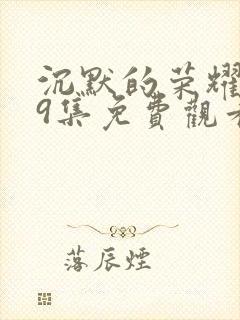 沉默的荣耀
9集免費觀
落辰煙